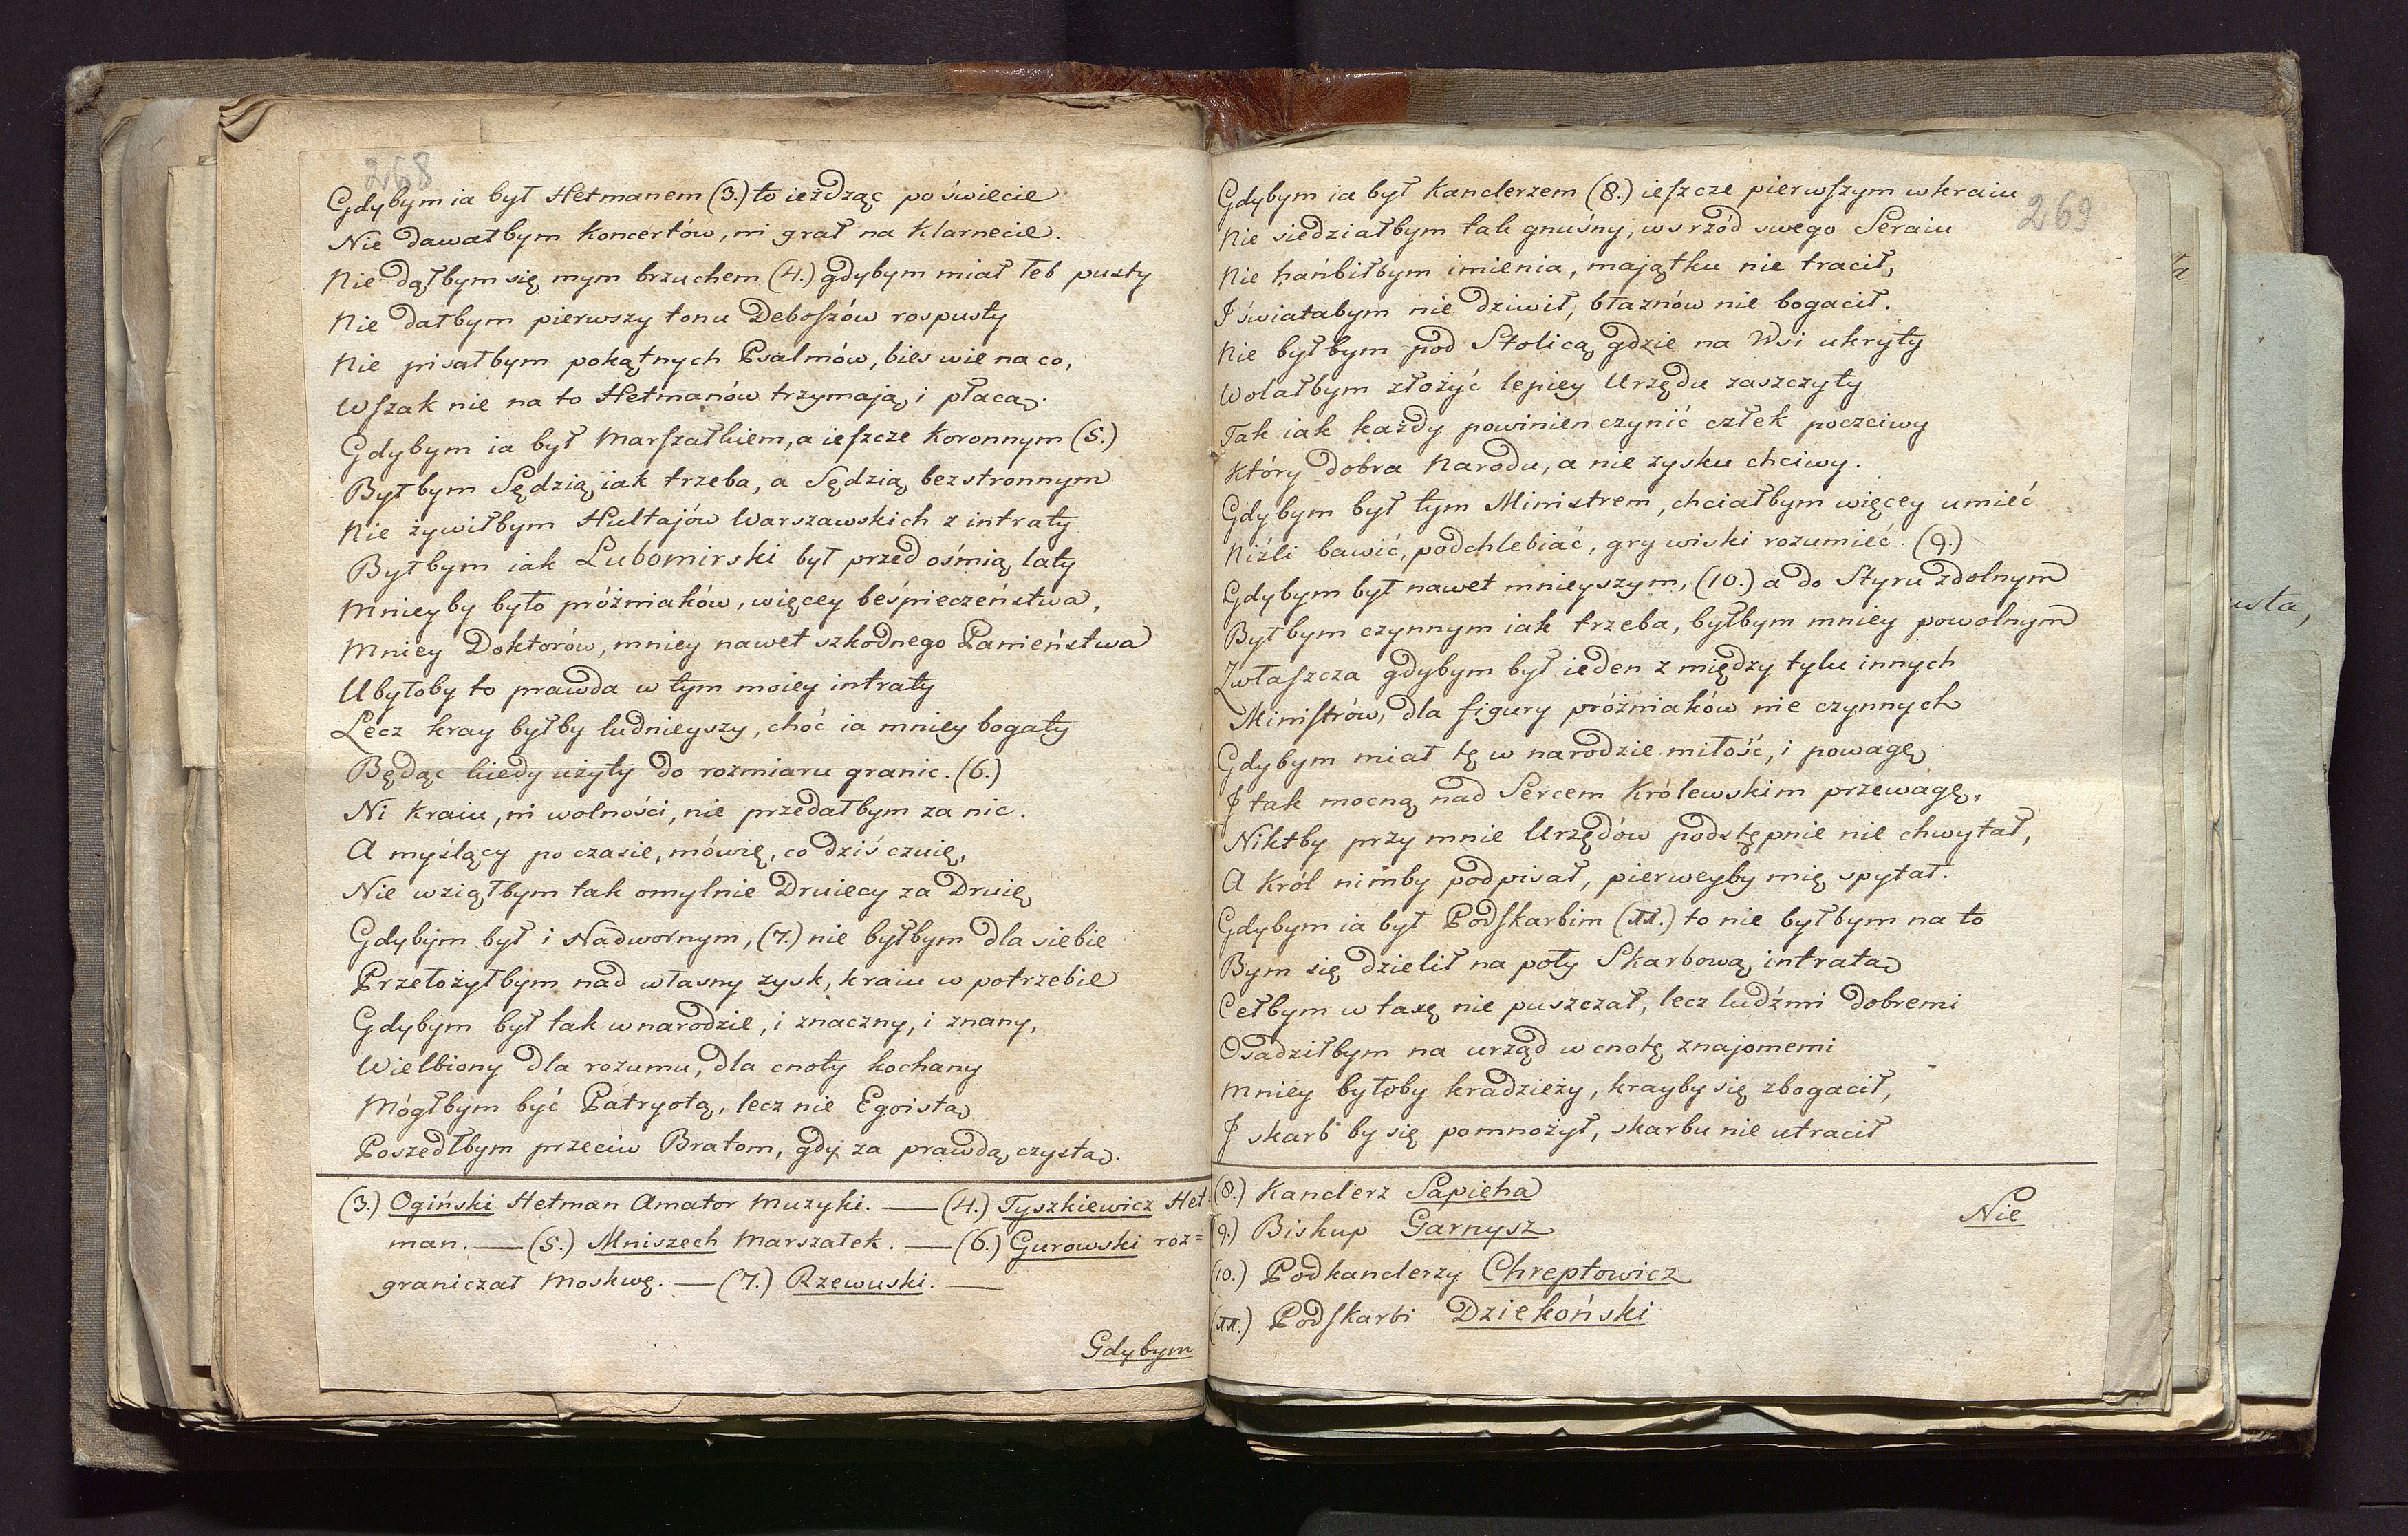 268
Gdybym ia był Hetmanem (3.) to ieżdżąc po świecie
Nie dawałbym koncertów, ni grał na klarnecie.
Nie dąłbym się mym brzuchem (4.) gdybym miał łeb pusty
Nie dałbym pierwszy tonu Deboſzów rospusty
Nie pisałbym pokątnych Psalmów, bies wie na co,
Wſzak nie na to Hetmanów trzymają i płacą.
Gdybym ia był Marſzałkiem, a ieſzcze Koronnym (5.)
Byłbym Sędzią iak trzeba, a Sędzią bezstronnym
Nie żywiłbym Hultajów Warszawskich z intraty
Byłbym iak Lubomirski był przed ośmią laty
Mnieyby było próżniaków, więcey beśpieczeństwa,
Mniey Doktorów, mniey nawet szkodnego Panieństwa
Ubyłoby to prawda w tym moiey intraty
Lecz kray byłby ludnieyszy, choć ia mniey bogaty
Będąc kiedy użyty do rozmiaru granic. (6.)
Ni kraiu, ni wolności, nie przedałbym za nic.
A myślący po czasie, mówię, co dziś czuię,
Nie wziąłbym tak omylnie Druiecy za Druię
Gdybym był i Nadwornym, (7.) nie byłbym dla siebie
Przełożyłbym nad własny zysk, kraiu w potrzebie
Gdybym był tak w narodzie, i znaczny, i znany,
Wielbiony dla rozumu, dla cnoty kochany
Mógłbym być Patryotą, lecz nie Egoistą
Poszedłbym przeciw Bratom, gdy za prawdą czystą.
(3.) Ogiński Hetman Amator Muzyki. — (4.) Tyszkiewicz Het:
man. — (5.) Mniszech Marszałek. — (6.) Gurowski roz=
graniczał Moskwę. — (7.) Rzewuski. —
Gdybym
269
Gdybym ia był Kanclerzem (8.) ieſzcze pierwſzym w kraiu
Nie siedziałbym tak gnuśny, wsrzód swego Seraiu
Nie hańbiłbym imienia, majątku nie tracił,
I świata bym nie dziwił, błaznów nie bogacił.
Nie byłbym pod Stolicą gdzie na Wsi ukryty
Wolałbym złożyć lepiey Urzędu zaszczyty
Tak iak każdy powinien czynić człek poczciwy
Który dobra Narodu, a nie zysku chciwy.
Gdybym był tym Ministrem, chciałbym więcey umieć
Niźli bawić, podchlebiać, gry wiski rozumieć. (9.)
Gdybym był nawet mnieyszym, (10.) a do Styru zdolnym
Byłbym czynnym iak trzeba, byłbym mniey powolnym
Zwłaſzcza gdybym był ieden z między tylu innych
Miniſtrów, dla figury próżniaków nie czynnych
Gdybym miał tę w narodzie miłość, i powagę
I tak mocną nad Sercem Królewskim przewagę,
Niktby przy mnie Urzędów podstępnie nie chwytał,
A Król nimby podpisał, pierweyby mię spytał.
Gdybym ia był Podſkarbim (11.) to nie byłbym na to
Bym się dzielił na poły Skarbową intratą
Cełbym w taxę nie puszczał, lecz ludźmi dobremi
Osadziłbym na urząd w cnotę znajomemi
Mniey byłoby kradzieży, krayby się zbogacił,
I skarb by się pomnożył, skarbu nie utracił
(8.) Kanclerz Sapieha
(9.) Biskup Garnysz
(10.) Podkanclerzy Chreptowicz
(11.) Podſkarbi Dziekoński
Nie